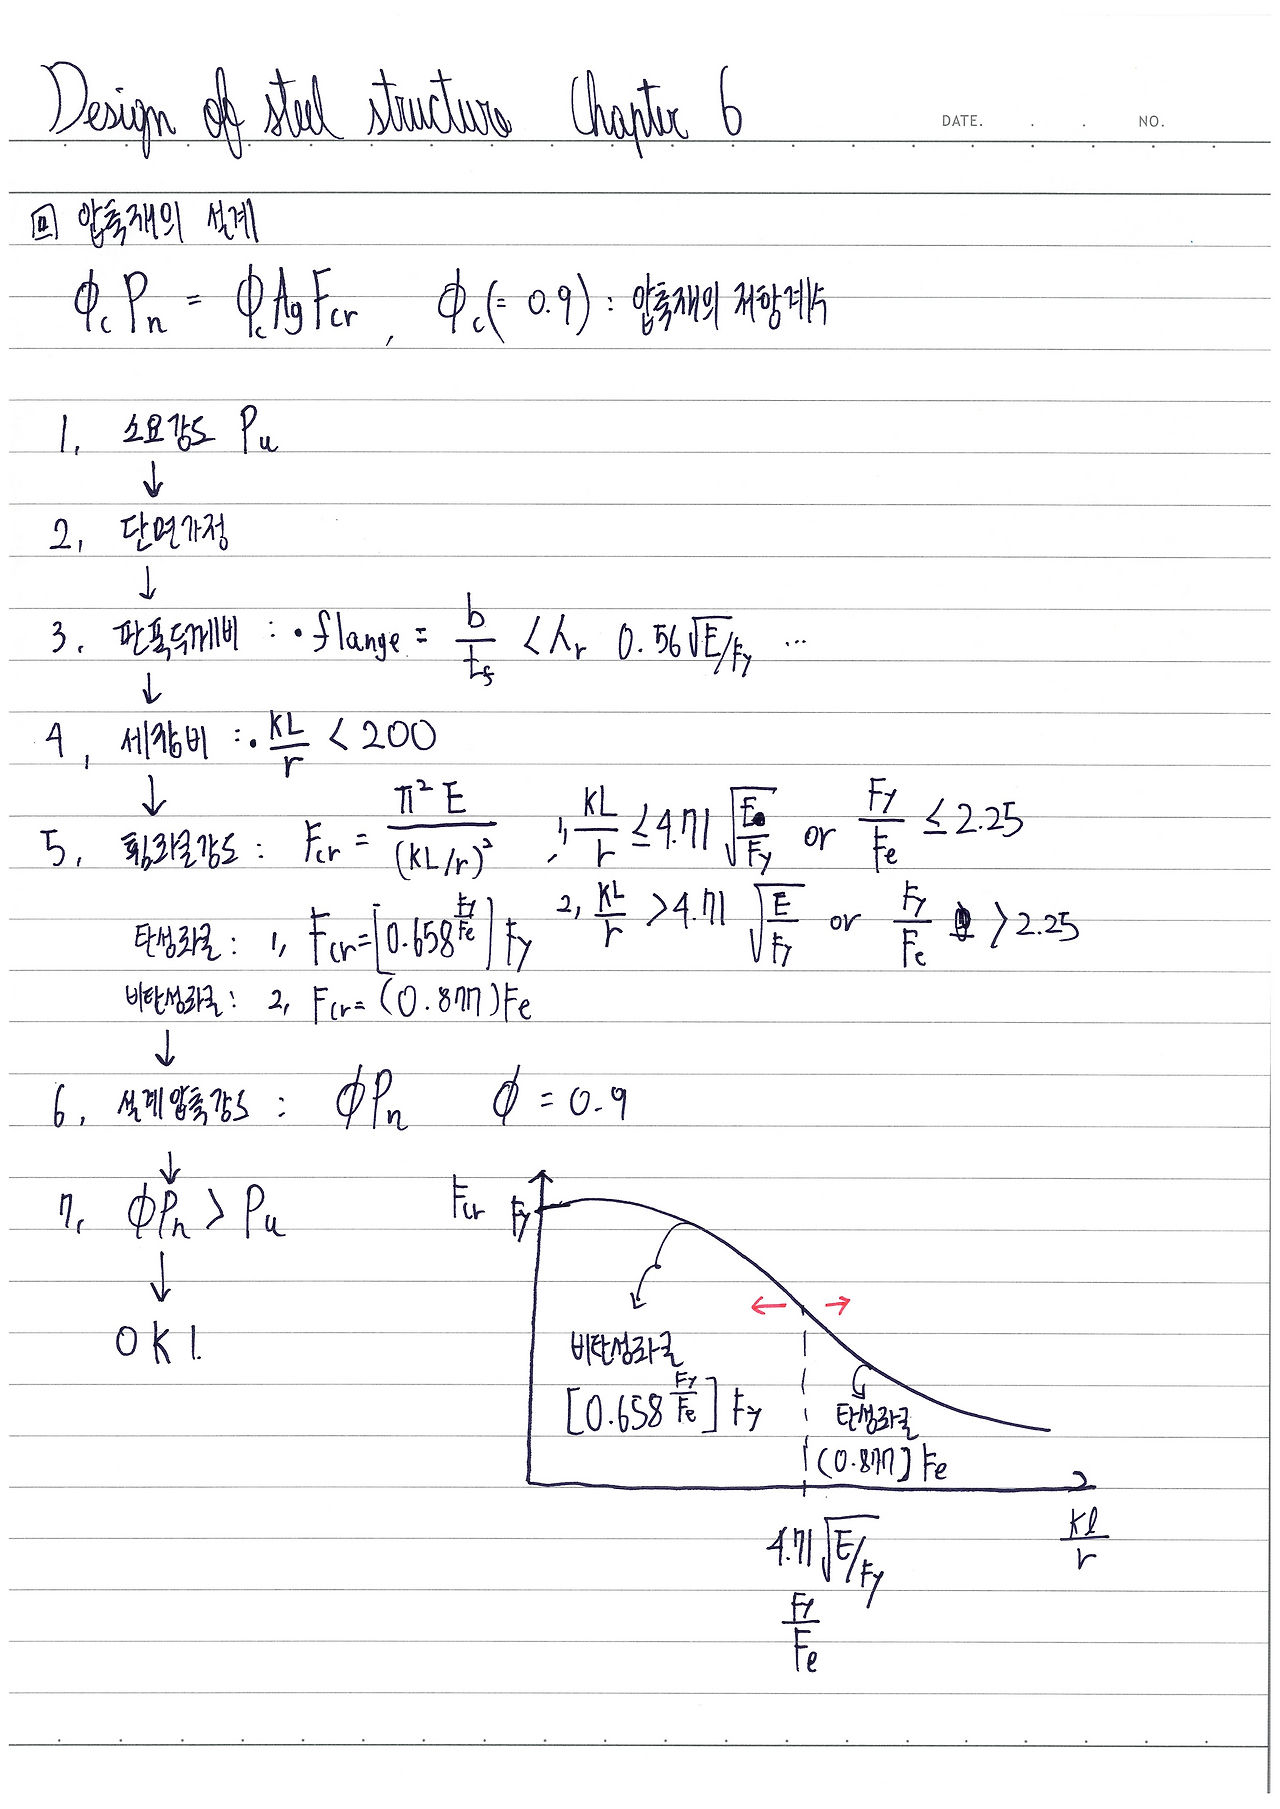 Design of steel structure Chapter 6
DATE. . . NO.
回 압축재의 설계
ϕc Pn = ϕc Ag Fcr , ϕc (= 0.9) : 압축재의 저항계수
1, 소요강도 Pu
↓
2, 단면가정
↓
3, 판폭두께비 : • flange = b/tf < λr 0.56√E/Fy ...
↓
4, 세장비 : • KL/r < 200
↓
5, 휨좌굴강도 : Fcr = π² E/(KL/r)² , 1, KL/r ≤ 4.71 √E/Fy or Fy/Fe ≤ 2.25
2, KL/r > 4.71 √E/Fy or Fy/Fe > 2.25
탄성좌굴 : 1, Fcr = [0.658^Fy/Fe] Fy
비탄성좌굴 : 2, Fcr = (0.877) Fe
↓
6, 설계압축강도 : ϕPn ϕ = 0.9
↓
7, ϕPn > Pu
↓
OK!
Fcr Fy
← →
비탄성좌굴
[0.658^Fy/Fe] Fy
탄성좌굴
(0.877] Fe
4.71 √E/Fy
Kl/r
Fy/Fe